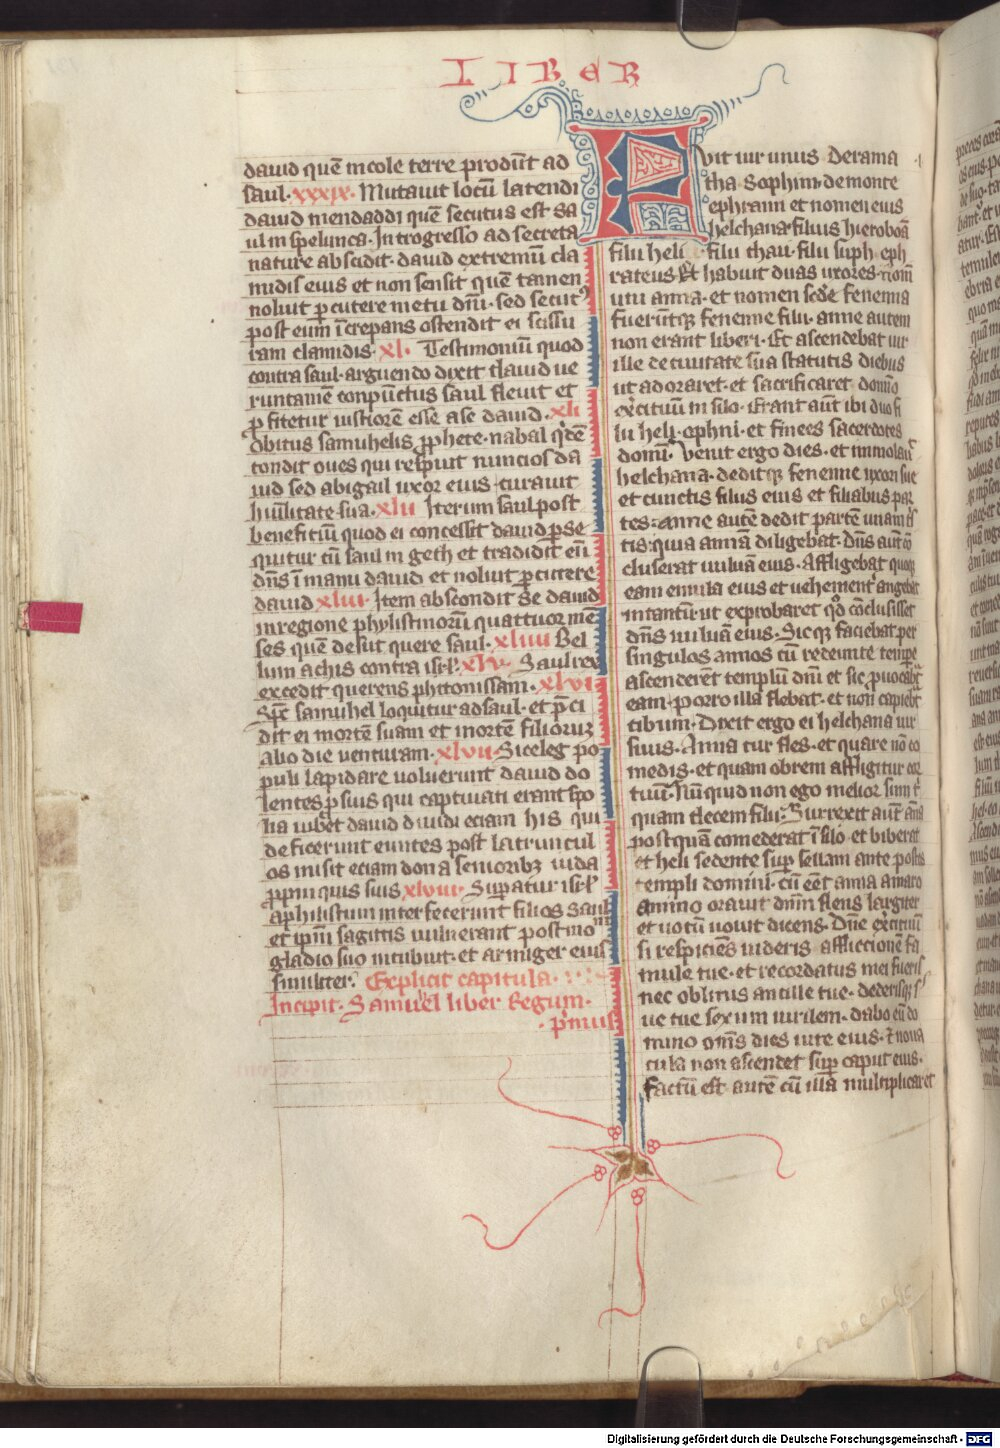 LIBER
dauid quē incole terre produ̅t ad
saul. xxxix. Mutauit locū latendi
dauid inengaddi quē secutus est sa
ul in spelunca. Introgresso ad secreta
nature abscidit. dauid extremū cla
midis eius et non sensit quē tamen
noluit ꝑcutere metu dn̄i. sed secutꝰ
post eum īcrepans ostendit ei scissu
ram clamidis. xl. Testimoniū quod
contra saul. arguendo dixit dauid ue
runtamē conpunctus saul fleuit et
ꝓfitetur iustiorē esse a se dauid. xli
Obitus samuhelis ꝓphete. nabal
tondit oues qui respuit nuncios da
uid sed abigail uxor eius curauit
hūilitate sua. xlii Iterum saul post
benefitiū quod ei concessit dauid ꝑse
quitur cū saul in geth et tradidit eū
dn̄s ī manu dauid et noluit ꝑcutere
dauid xliii. Item abscondit se dauid
in regione phylistinorū quattuor mē
ses quē desiit quere saul. xliiii Bel
lum achis contra isrl̄. xlv. Saul rex
excedit querens phitonissam. xlvi
Spc̄ samuhel loquitur ad saul. et p̄ci
dit ei mortē suam et mortē filiorum
ab eo die uenturam. xlvii. Siceleg po
puli lapidare uoluerunt dauid do
lentes ꝑ suis qui captiuati erant spo
lia iubet dauid diuidi eciam his qui
deficerunt euntes post latruncul
os misit eciam dona senioribꝫ iuda
ꝓpinquis suis xlviii. Suꝑatur isrl̄
a philistiim interfecerunt filios saul
et ipm̄ sagittis uulnerant postmo
gladio suo incubuit. et armiger eius
similiter. Explicit capitula.
Incipit. Samuel liber Regum.
p̄mus
Fuit uir unus de rama
tha. Sophim. de monte
ephraim et nomen eius
helchana filius hieroboā
filii heli filii thau. filii suph. eph
rateus. Et habuit duas uxores. nom̄
uni anna. et nomen scd̄e fenenna
fuerūtqꝫ fenenne filii. anne autem
non erant liberi. Et ascendebat uir
ille de ciuitate sua statutis diebus
ut adoraret. et sacrificaret domino
exercituū in silo. Erant aūt ibi duo fi
lii heli. ophni. et finees sacerdotes
domini. Uenit ergo dies. et immolauit
helchana. deditqꝫ fenenne uxori sue
et cunctis filiis eius et filiabus par
tes. Anne autē dedit partē unam
tis. quia annā diligebat. Dn̄s aut cō
cluserat uuluā eius. Affligebat quoqꝫ
eam emula eius et uehement̄ angebat
intantū. ut exprobaret qd̄ cōclusisset
dn̄s uuluā eius. Sicqꝫ faciebat per
singulos annos cū redeunte tempe
ascenderent templū dn̄i et sic ꝓuocab̄t
eam. porro illa flebat. et non capieb̄t
cibum. Dixit ergo ei helchana uir
suus. Anna cur fles. et quare nō co
medis. et quam obrem affligitur cor
tuū. Nūquid non ego melior sum t̄
quam decem filii. Surrexit aūt āna
postquā comederat ī silo. et biberat
et heli sedente suꝑ sellam ante postes
templi domini. cū eēt anna amaro
animo orauit dn̄m flens largiter
et uotū uouit dicens. Dn̄e exercituū
si respiciēs uideris affliccionē fa
mule tue. et recordatus mei fueris
nec oblitus ancille tue. dederisqꝫ s̄
ue tue sexum uirilem. dabo eū do
mino om̄s dies uite eius. et noua
cula non ascendet suꝑ caput eius.
Factū est autē cū illa multiplicaret
Digitalisierung gefördert durch die Deutsche Forschungsgemeinschaft - DFG